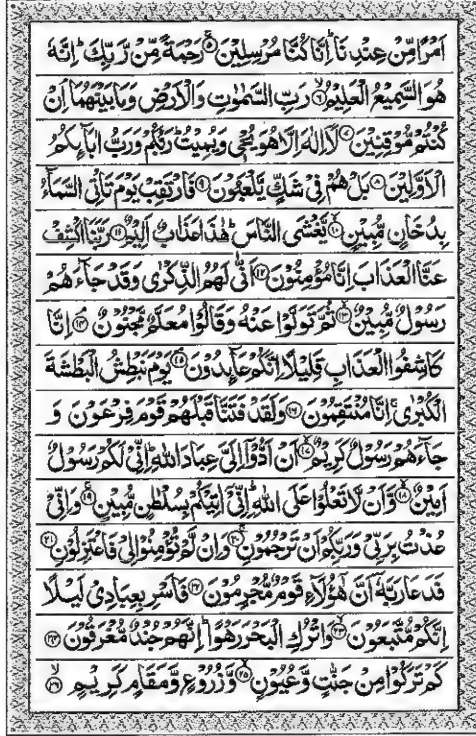 اَمْرًا مِّنْ عِنْدِنَا ؕ اِنَّا كُنَّا مُرْسِلِيْنَ ۚ﴿۵﴾ رَحْمَةً مِّنْ رَّبِّكَ ؕ اِنَّهٗ
هُوَ السَّمِيْعُ الْعَلِيْمُ ۙ﴿۶﴾ رَبِّ السَّمٰوٰتِ وَالْاَرْضِ وَمَا بَيْنَهُمَا ۘ اِنْ
كُنْتُمْ مُّوْقِنِيْنَ ﴿۷﴾ لَاۤ اِلٰهَ اِلَّا هُوَ يُحْيٖ وَيُمِيْتُ ؕ رَبُّكُمْ وَرَبُّ اٰبَآئِكُمُ
الْاَوَّلِيْنَ ﴿۸﴾ بَلْ هُمْ فِيْ شَكٍّ يَّلْعَبُوْنَ ﴿۹﴾ فَارْتَقِبْ يَوْمَ تَاْتِي السَّمَآءُ
بِدُخَانٍ مُّبِيْنٍ ۙ﴿۱۰﴾ يَّغْشَى النَّاسَ ؕ هٰذَا عَذَابٌ اَلِيْمٌ ﴿۱۱﴾ رَبَّنَا اكْشِفْ
عَنَّا الْعَذَابَ اِنَّا مُؤْمِنُوْنَ ﴿۱۲﴾ اَنّٰى لَهُمُ الذِّكْرٰى وَقَدْ جَآءَهُمْ
رَسُوْلٌ مُّبِيْنٌ ۙ﴿۱۳﴾ ثُمَّ تَوَلَّوْا عَنْهُ وَقَالُوْا مُعَلَّمٌ مَّجْنُوْنٌ ۘ﴿۱۴﴾ اِنَّا
كَاشِفُوا الْعَذَابِ قَلِيْلًا اِنَّكُمْ عَآئِدُوْنَ ۘ﴿۱۵﴾ يَوْمَ نَبْطِشُ الْبَطْشَةَ
الْكُبْرٰى ۚ اِنَّا مُنْتَقِمُوْنَ ﴿۱۶﴾ وَلَقَدْ فَتَنَّا قَبْلَهُمْ قَوْمَ فِرْعَوْنَ وَ
جَآءَهُمْ رَسُوْلٌ كَرِيْمٌ ۙ﴿۱۷﴾ اَنْ اَدُّوْۤا اِلَيَّ عِبَادَ اللّٰهِ ؕ اِنِّيْ لَكُمْ رَسُوْلٌ
اَمِيْنٌ ۙ﴿۱۸﴾ وَّاَنْ لَّا تَعْلُوْا عَلَى اللّٰهِ ؕ اِنِّيْۤ اٰتِيْكُمْ بِسُلْطٰنٍ مُّبِيْنٍ ۚ﴿۱۹﴾ وَاِنِّيْ
عُذْتُ بِرَبِّيْ وَرَبِّكُمْ اَنْ تَرْجُمُوْنِ ۫﴿۲۰﴾ وَاِنْ لَّمْ تُؤْمِنُوْا لِيْ فَاعْتَزِلُوْنِ ﴿۲۱﴾
فَدَعَا رَبَّهٗۤ اَنَّ هٰۤؤُلَآءِ قَوْمٌ مُّجْرِمُوْنَ ﴿۲۲﴾ فَاَسْرِ بِعِبَادِيْ لَيْلًا
اِنَّكُمْ مُّتَّبَعُوْنَ ۙ﴿۲۳﴾ وَاتْرُكِ الْبَحْرَ رَهْوًا ؕ اِنَّهُمْ جُنْدٌ مُّغْرَقُوْنَ ﴿۲۴﴾
كَمْ تَرَكُوْا مِنْ جَنّٰتٍ وَّعُيُوْنٍ ۙ﴿۲۵﴾ وَّزُرُوْعٍ وَّمَقَامٍ كَرِيْمٍ ۙ﴿۲۶﴾